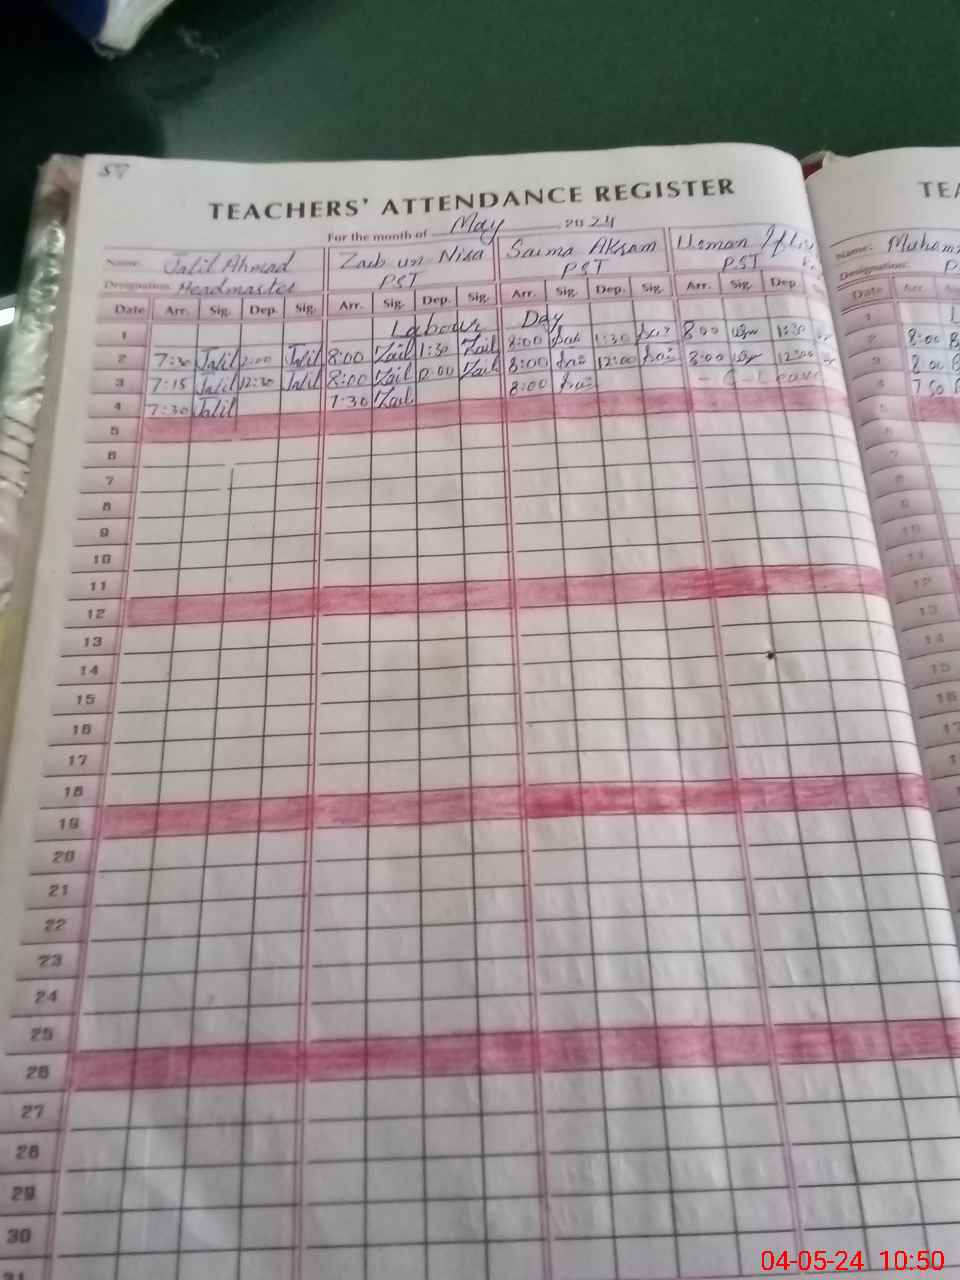 57
TEACHERS' ATTENDANCE REGISTER
TEA
For the month of May 2024
Name: Jalil Ahmad Zaib un Nisa Saima Akram Usman Name: Muham
Designation Headmaster PST PST PST Designation: P
Date Arr. Sig. Dep. Sig. Arr. Sig. Dep. Sig. Arr. Sig. Dep. Sig. Arr. Sig. Dep. Date Arr. S
1 Labour Day 1 L
2 7:30 Jalil 2:00 Jalil 8:00 Zaib 1:30 Zaib 8:00 Sai 1:30 Sai 8:00 1:30 2 8:00 B
3 7:15 Jalil 12:30 Jalil 8:00 Zaib 12:00 Zaib 8:00 Sai 12:00 Sai 8:00 12:00 3 8:00 B
4 7:30 Jalil 7:30 Zaib 8:00 Sai - C-Leave 4 7:50 B
5 5
6 6
7 7
8 8
9 9
10 10
11 11
12 12
13 13
14 14
15 15
16 16
17 17
18 1
19
20
21
22
23
24
25
26
27
28
29
30
31
04-05-24 10:50